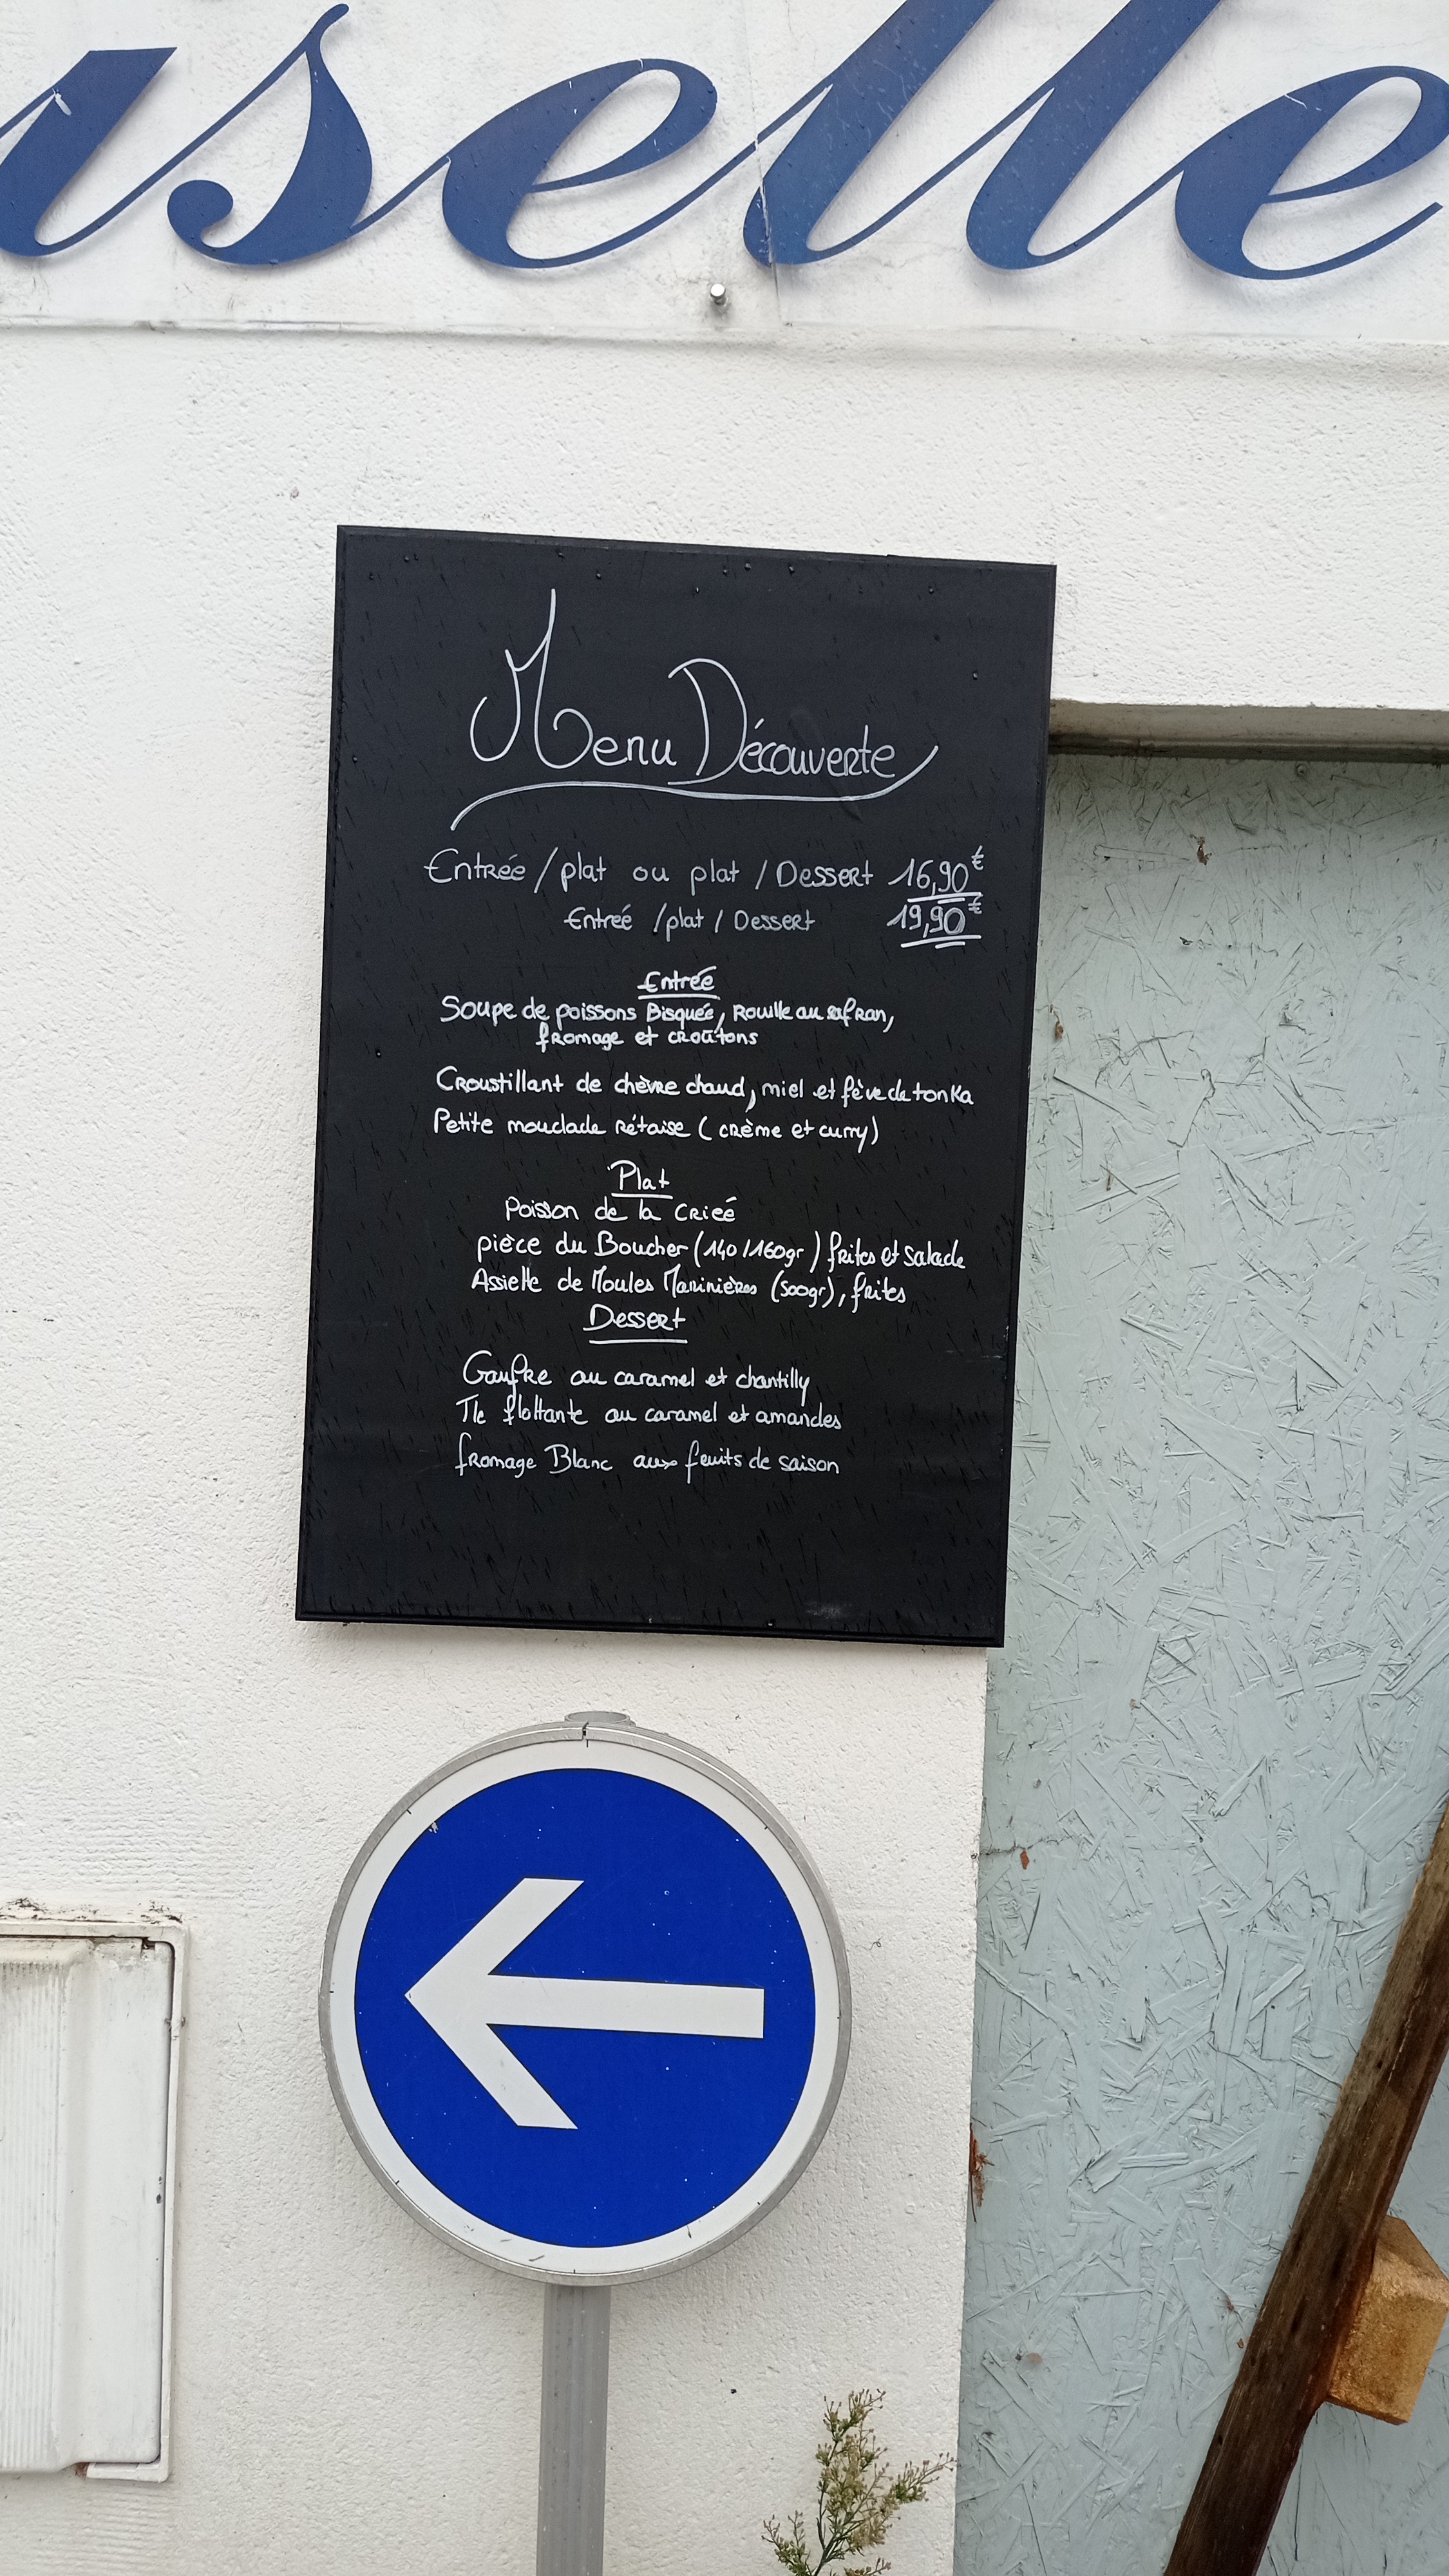 iselle
Menu Découverte
Entrée / plat ou plat / Dessert 16,90€
Entreé / plat / Dessert 19,90€
Entreé
Soupe de poissons Bisquée, Rouille au safran,
fromage et croûtons
Croustillant de chèvre chaud, miel et fève de tonka
Petite mouclade rétaise (crème et curry)
Plat
Poisson de la Crieé
pièce du Boucher (140/160gr) frites et salade
Assiette de Moules Marinières (500gr), frites
Dessert
Gaufre au caramel et chantilly
Ile flottante au caramel et amandes
fromage Blanc aux fruits de saison